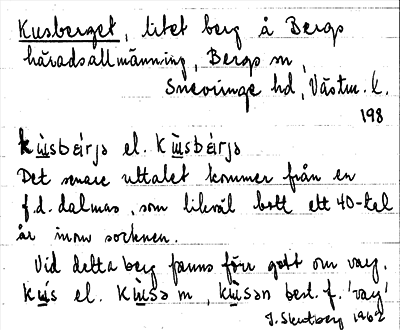 Kusberget, litet berg å Bergs
häradsallmänning, Bergs sn,
Snevringe hd, Västm. l.
198
kùsbærja el. Kùsbærja
Det senare uttalet kommer från en
f.d. dalmas, som likväl bott ett 40-tal
år inom socknen.
Vid detta berg fanns förr gott om varg.
Kus el. Kùsa m, kùsən best. f. 'varg'
1962